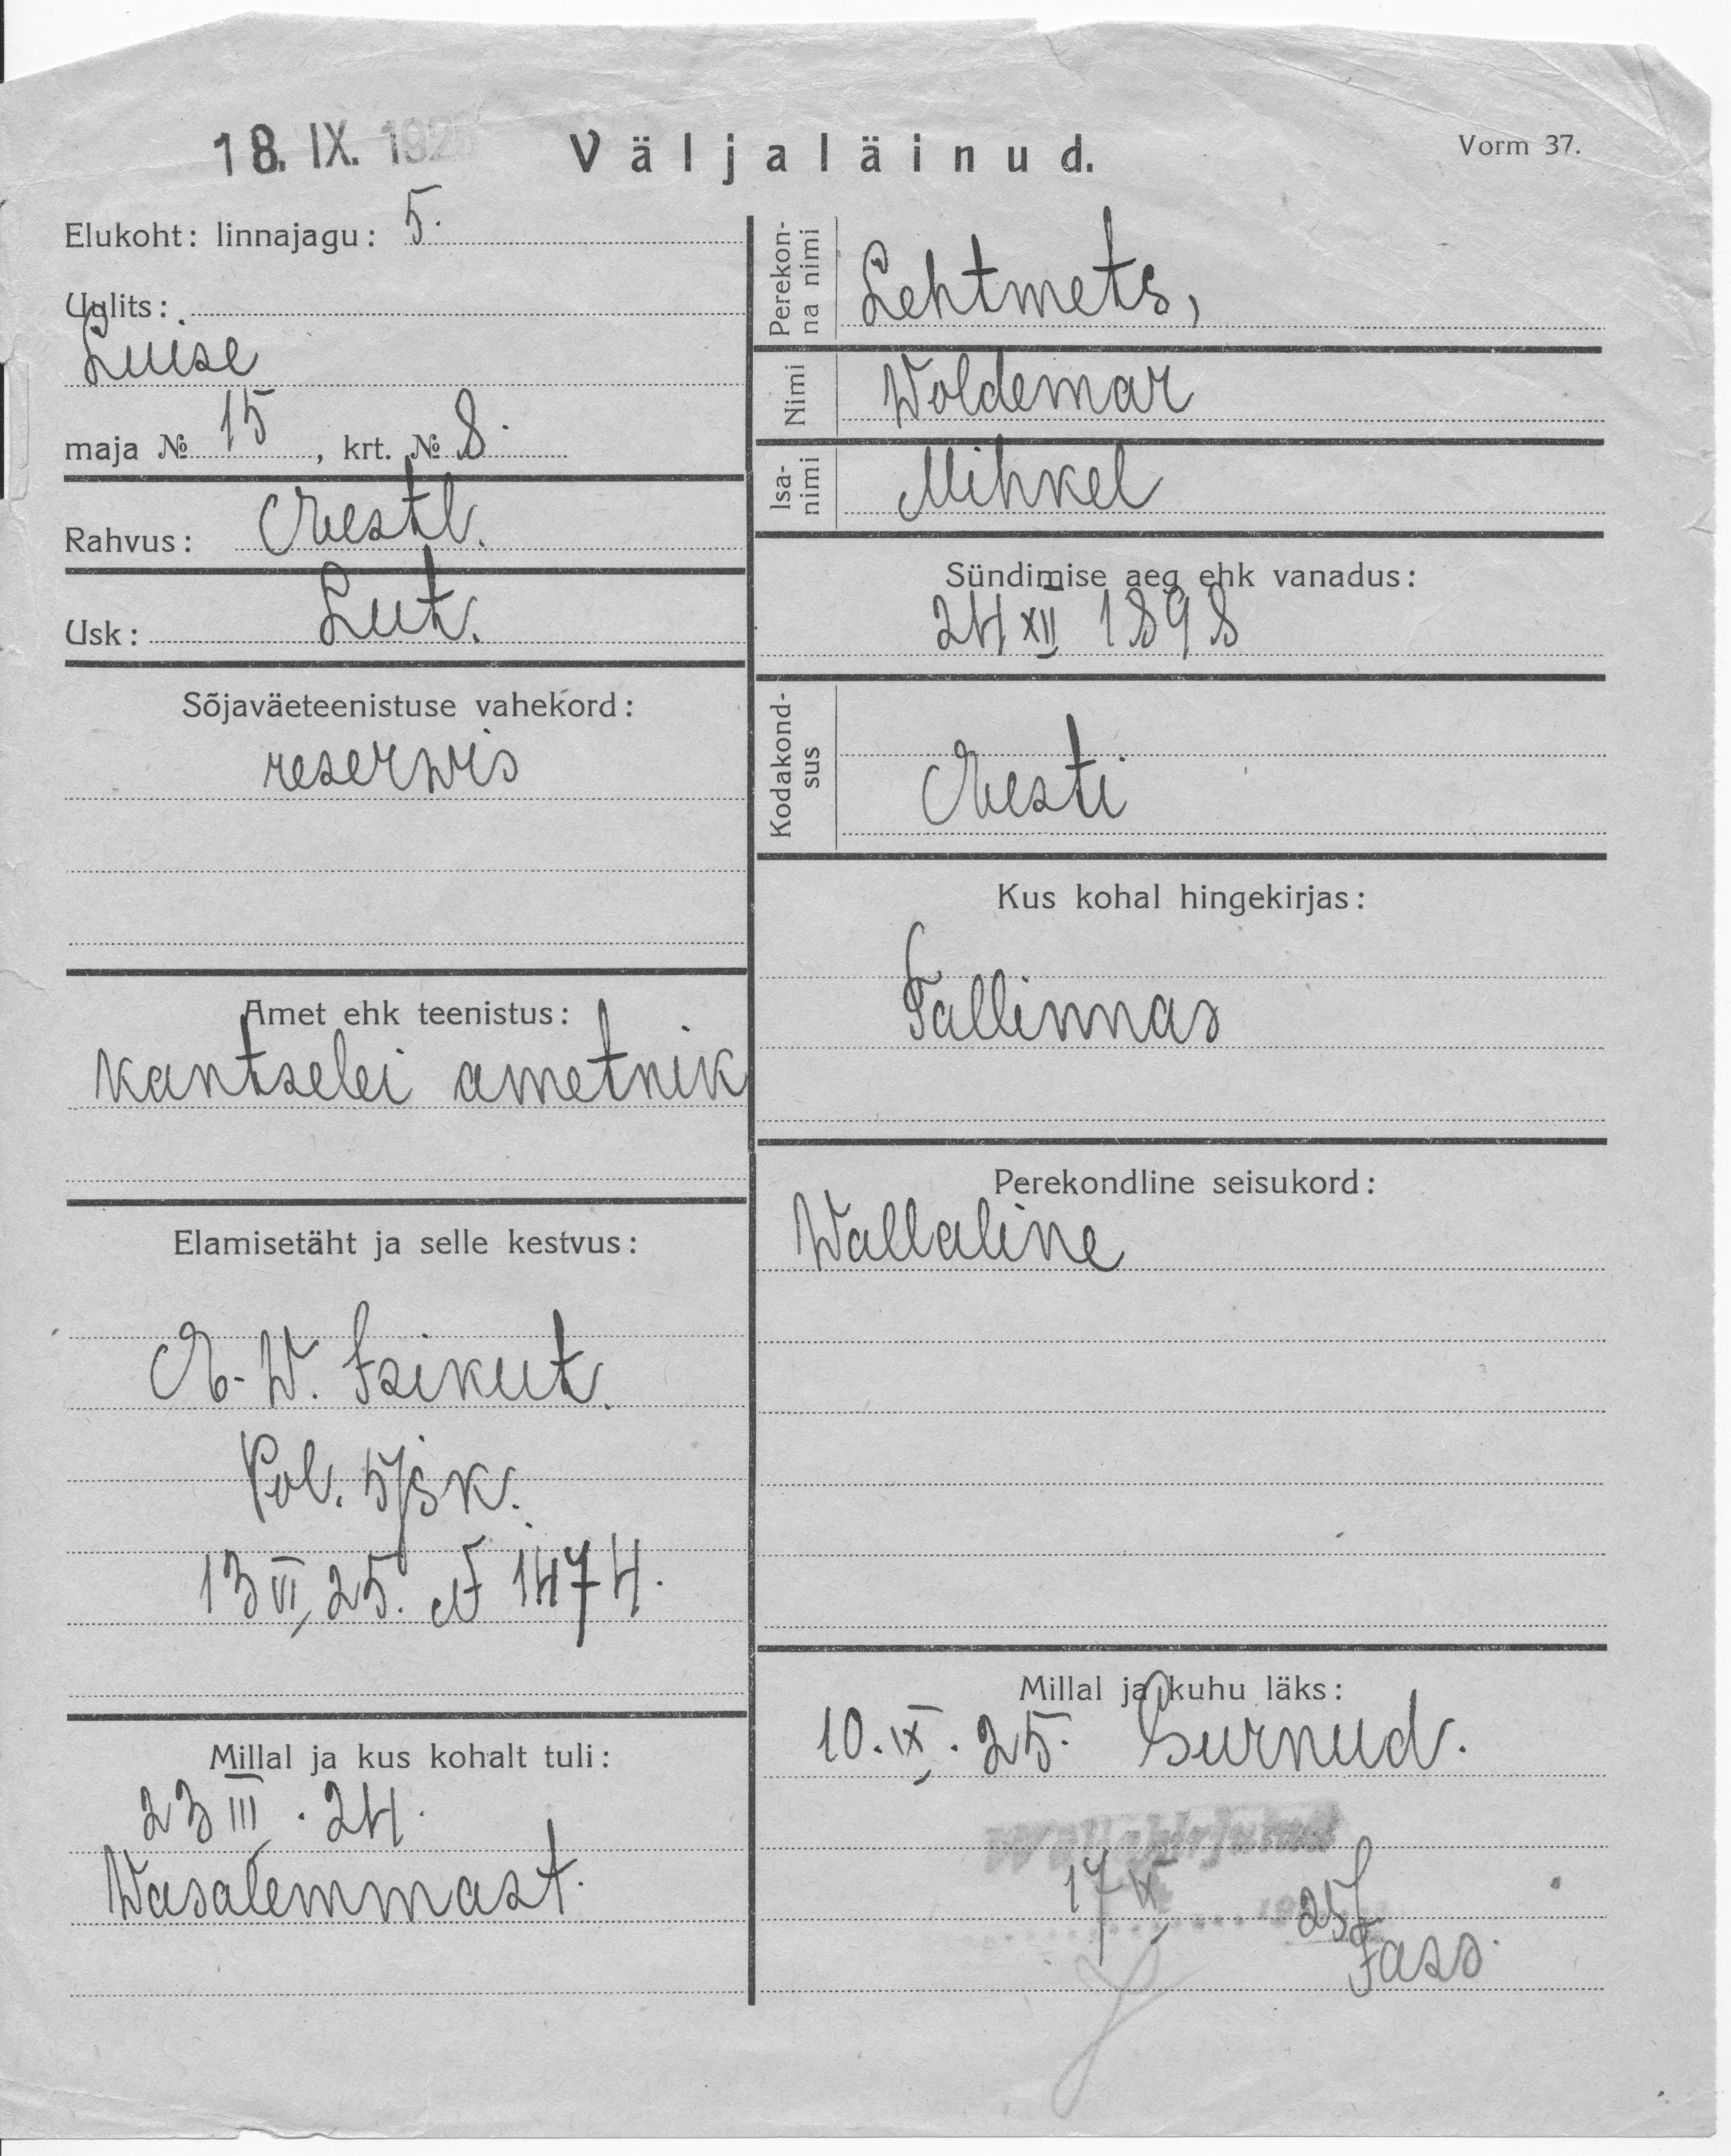 18. IX. 192
Väljaläinud.
Vorm 37.
Elukoht: linnajagu: 5.
Uulits:
Luise
maja № 15, krt. № 8.
Rahvus: Eestl.
Usk: Lut.
Sõjaväeteenistuse vahekord:
reserwis
Amet ehk teenistus:
kantselei ametnik
Elamisetäht ja selle kestvus:
E. W. Isikut.
Pol. 5/jsk.
13 VI 25. № 1474.
Millal ja kus kohalt tuli:
23 III. 24.
Wasalemmast.
Perekon-
na nimi
Lehtmets,
Nimi Woldemar
Isa-
nimi
Mihkel
Sündimise aeg ehk vanadus:
24 XII 1898
Kodakond-
sus
Eesti
Kus kohal hingekirjas:
Tallinnas
Perekondline seisukord:
Wallaline
Millal ja kuhu läks:
10. IX. 25. Surnud.
17 IX 25